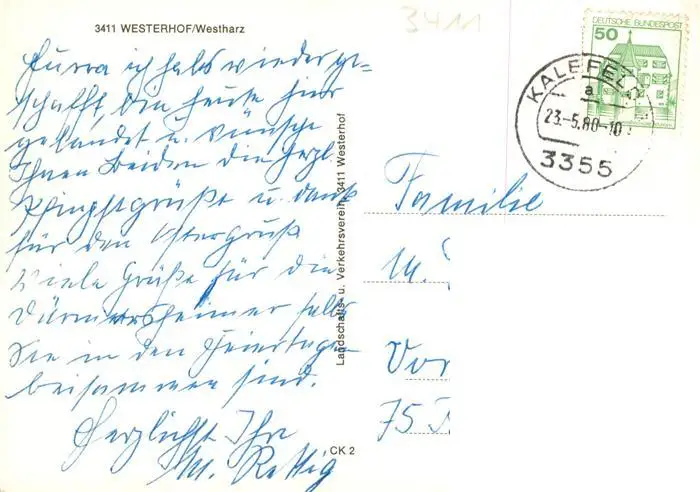 3411
3411 WESTERHOF/Westharz
DEUTSCHE BUNDESPOST
50
KALEFELD
a
23.-5.80-10
3355
Hurra ich habs wieder ge-
schafft, bin heute hier
gelandet u. wünsche
Ihnen Beiden die herzl.
Pfingstgrüße u. dank
für den Ostergruß
Viele Grüße für die
Dürmersheimer falls
Sie in den Feiertagen
beisammen sind.
Herzlichst Ihre
M. Rettig
Landschafts- u. Verkehrsverein, 3411 Westerhof
CK 2
Familie
M.
Vor
75